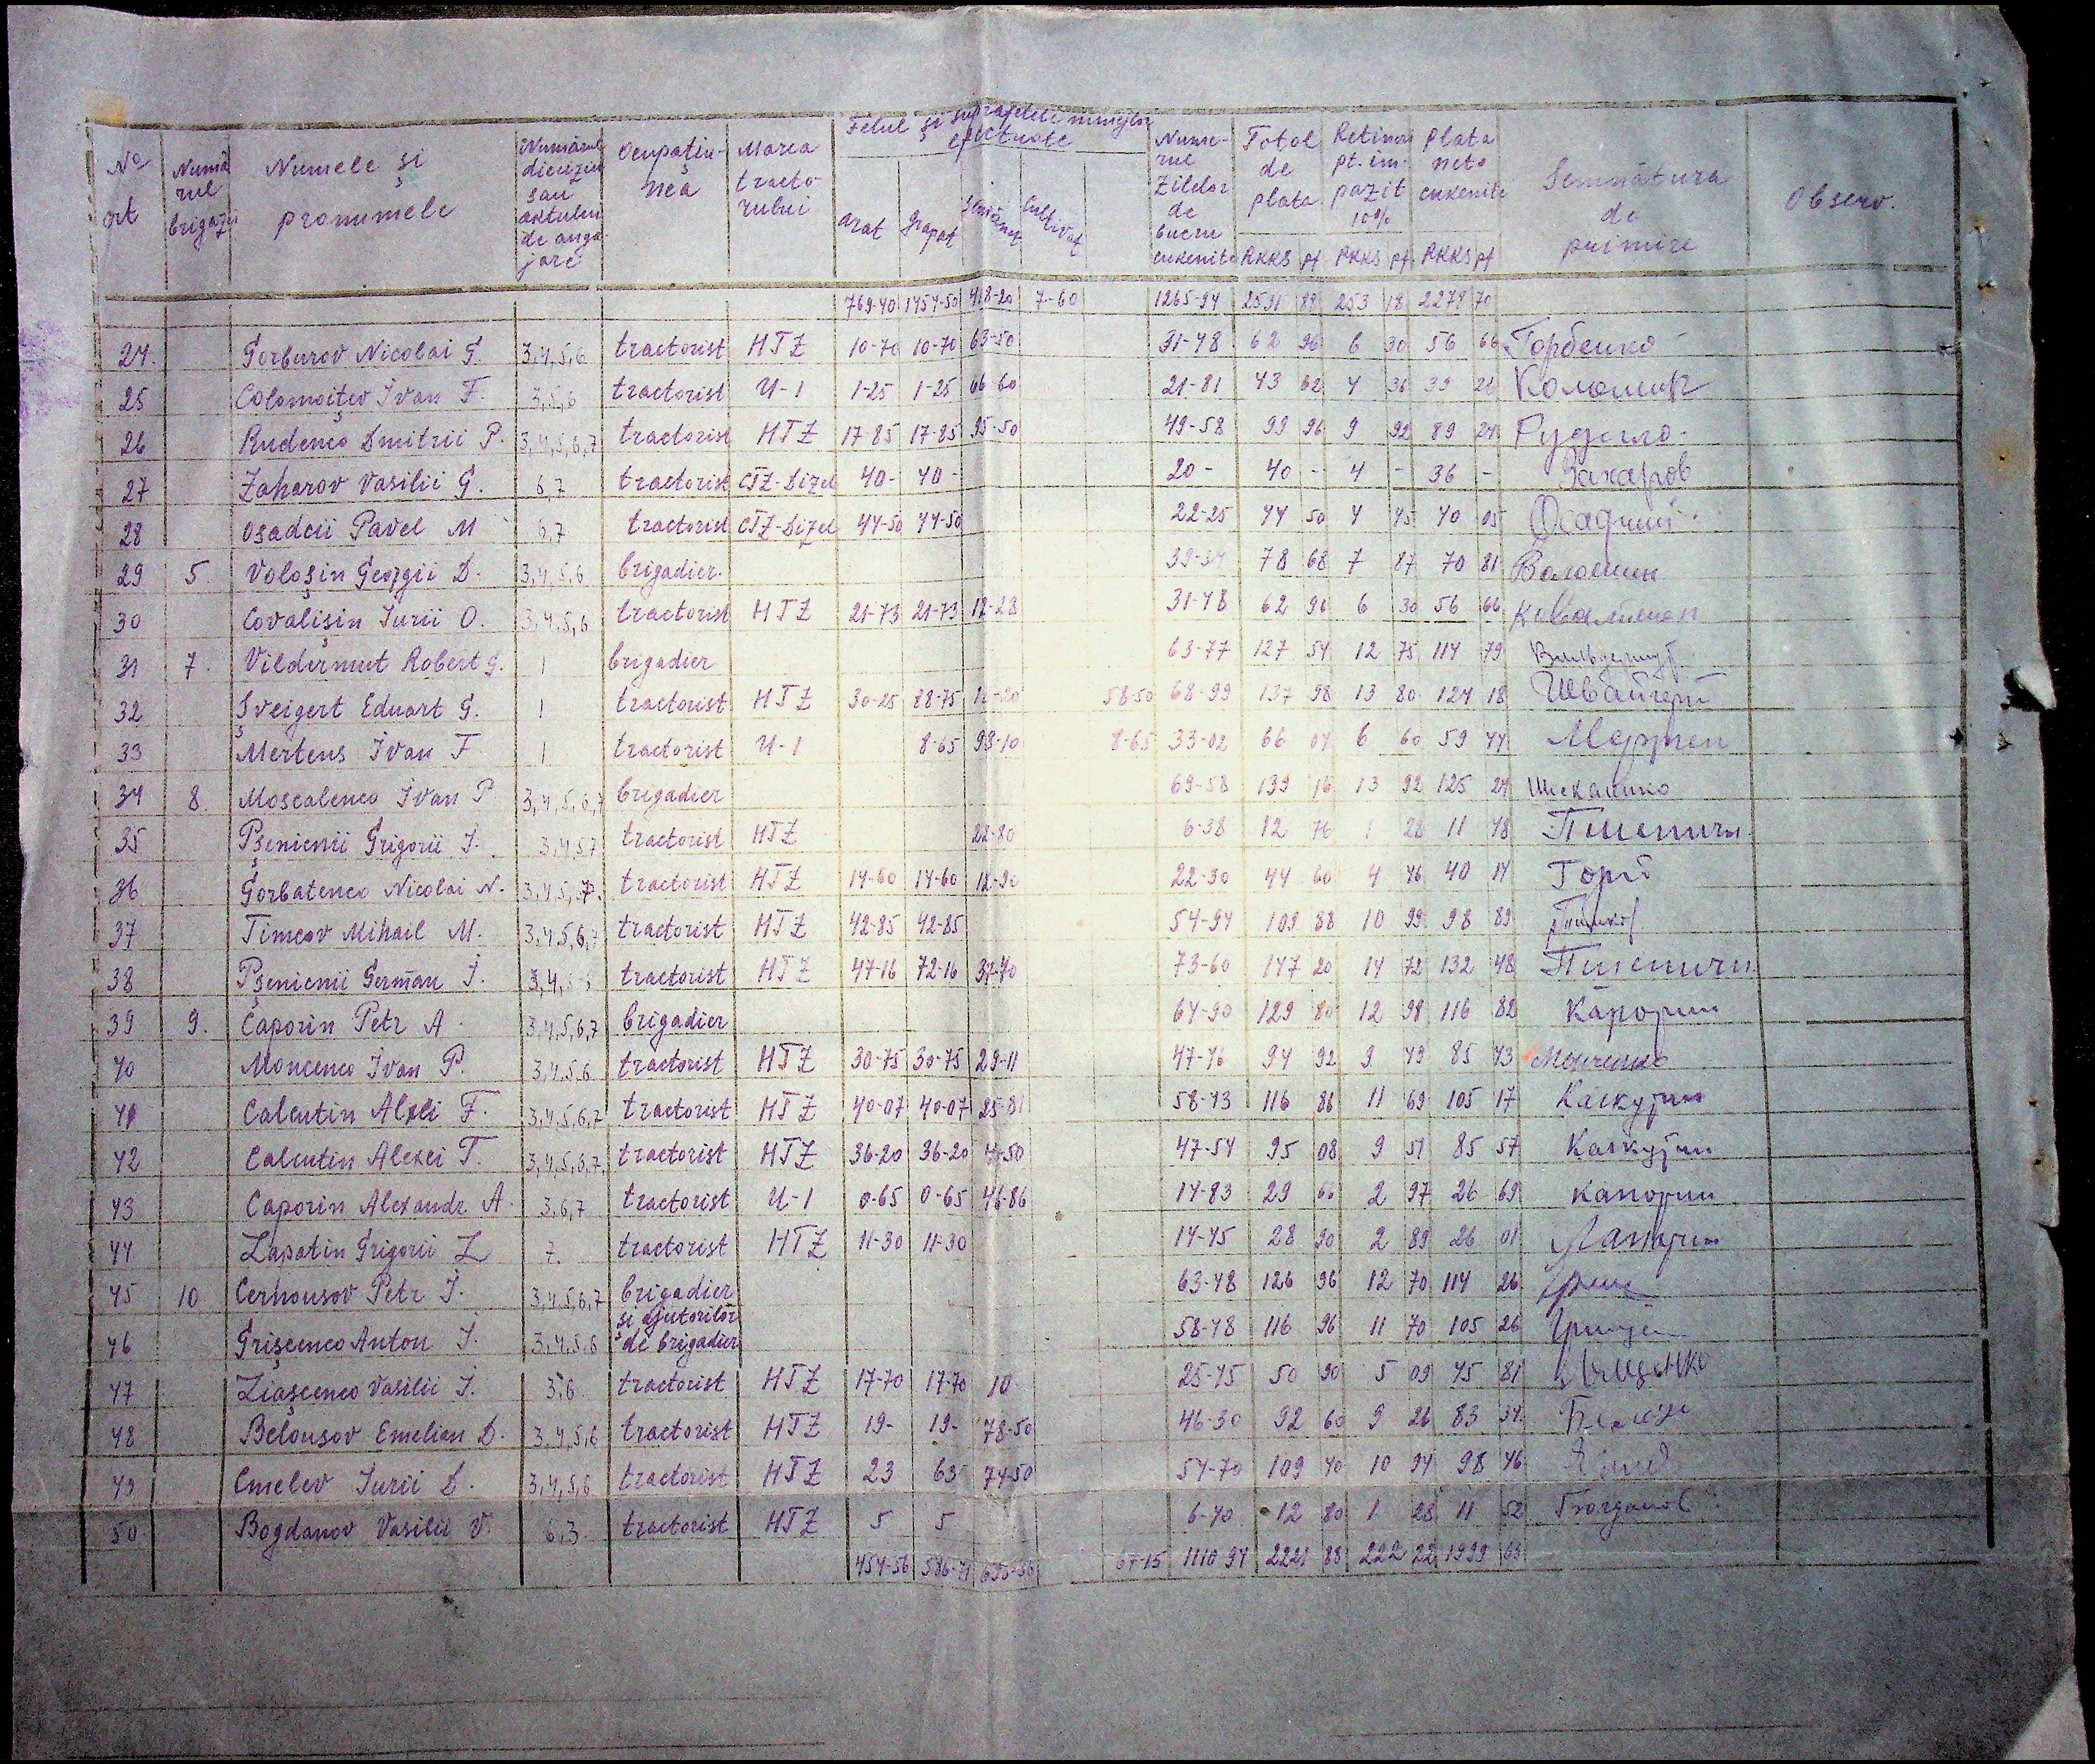 No ort Numărul brigazii Numele și pronumele Numărul deciziei sau aktului de angajare Ocupațiunea Marca tractorului Felul și suprafetele muncilor efectuate arat grapat semănat cultivat Numerul zilelor de lucru cuvenite Total de plata RKKS pf Retinere pt. impozit 10% RKKS pf Plata neto cuvenite RKKS pf Semnătura de primire Observ.
769-40 1454-50 418-20 7-60 1265-94 2591 89 253 18 2279 70
24. Gorburov Nicolai G. 3,4,5,6 tractorist HTZ 10-70 10-70 63-50 31-48 62 96 6 30 56 66 Горбенко
25 Colomoițev Ivan F. 3,5,6 tractorist U-1 1-25 1-25 66 60 21-81 43 62 4 36 39 26 Коломиец
26 Rudenco Dmitrii P. 3,4,5,6,7 tractorist HTZ 17 85 17-85 95-50 49-58 99 96 9 92 89 24
27 Zaharov Vasilii G. 6 7 tractorist CTZ-Dizel 40- 40- 20- 40 - 4 - 36 - Захаров
28 Osadcii Pavel M 6,7 tractorist CTZ-Dizel 44-50 44-50 22-25 44 50 4 45 40 05 Осадчий
29 5 Voloșin Georgii D. 3,4,5,6 brigadier. 39-34 78 68 7 87 70 81 Волошин
30 Covalișin Iurii O. 3,4,5,6 tractorist HTZ 21-73 21-73 12-28 31-48 62 96 6 30 56 66 Ковалишин
31 7. Vildermut Robert G. 1 brigadier 63-77 127 54 12 75 114 79 Вильдермут
32 Șveigert Eduart G. 1 tractorist HTZ 30-25 88-75 16-20 58-50 68-99 137 98 13 80 124 18 Швайгерт
33 Mertens Ivan F 1 tractorist U-1 8-65 93-10 8-65 33-02 66 04 6 60 59 44 Мертен
34 8. Moscalenco Ivan P 3,4,5,6,7 brigadier 69-58 139 16 13 92 125 24
35 Pșenicnii Grigorii I. 3,4,5,7 tractorist HTZ 22-80 6-38 12 76 1 28 11 48 Пшеничн
36 Gorbatenco Nicolai N. 3,4,5,7. tractorist HTZ 14-60 14-60 12-90 22-30 44 60 4 46 40 14 Горб
37 Timcov Mihail M. 3,4,5,6,7 tractorist HTZ 42-85 42-85 54-94 109 88 10 99 98 89
38 Pșenicnii German I. 3,4,5 tractorist HTZ 47-16 72-16 37-40 73-60 147 20 14 72 132 48 Пшеничн
39 9. Caporin Petr A. 3,4,5,6,7 brigadier 64-90 129 80 12 98 116 82 Капорин
40 Moncenco Ivan P. 3,4,5,6 tractorist HTZ 30-75 30-75 29-11 47-46 94 92 9 49 85 43 Менченко
41 Calcutin Alxei F. 3,4,5,6,7 tractorist HTZ 40-07 40-07 25-81 58-43 116 86 11 69 105 17
42 Calcutin Alexei T. 3,4,5,6,7. tractorist HTZ 36-20 36-20 4-50 47-54 95 08 9 51 85 57
43 Caporin Alexandr A. 3,6,7 tractorist U-1 0-65 0-65 46-86 14-83 29 66 2 97 26 69 Капорин
44 Lapatin Grigorii L 7. tractorist HTZ 11-30 11-30 14-45 28 90 2 89 26 01
45 10 Cerhousov Petr I. 3,4,5,6,7 brigadier 63-48 126 96 12 70 114 26
46 Grișcenco Anton I. 3,4,5,6 și ajutorilor de brigadier 58-48 116 96 11 70 105 26
47 Liașcenco Vasilii I. 3,6 tractorist HTZ 17-70 17-70 10 25-45 50 90 5 09 45 81 Лященко
48 Belousov Emelian D. 3,4,5,6 tractorist HTZ 19- 19- 78-50 46-30 92 60 9 26 83 34
49 Cmelev Iurii D. 3,4,5,6 tractorist HTZ 23 63 74-50 54-70 109 40 10 94 98 46
50 Bogdanov Vasilii V. 6,3. tractorist HTZ 5 5 6-40 12 80 1 28 11 52 Богданов
454-56 586-71 696-56 67-15 1110 94 2221 88 222 22 1999 66